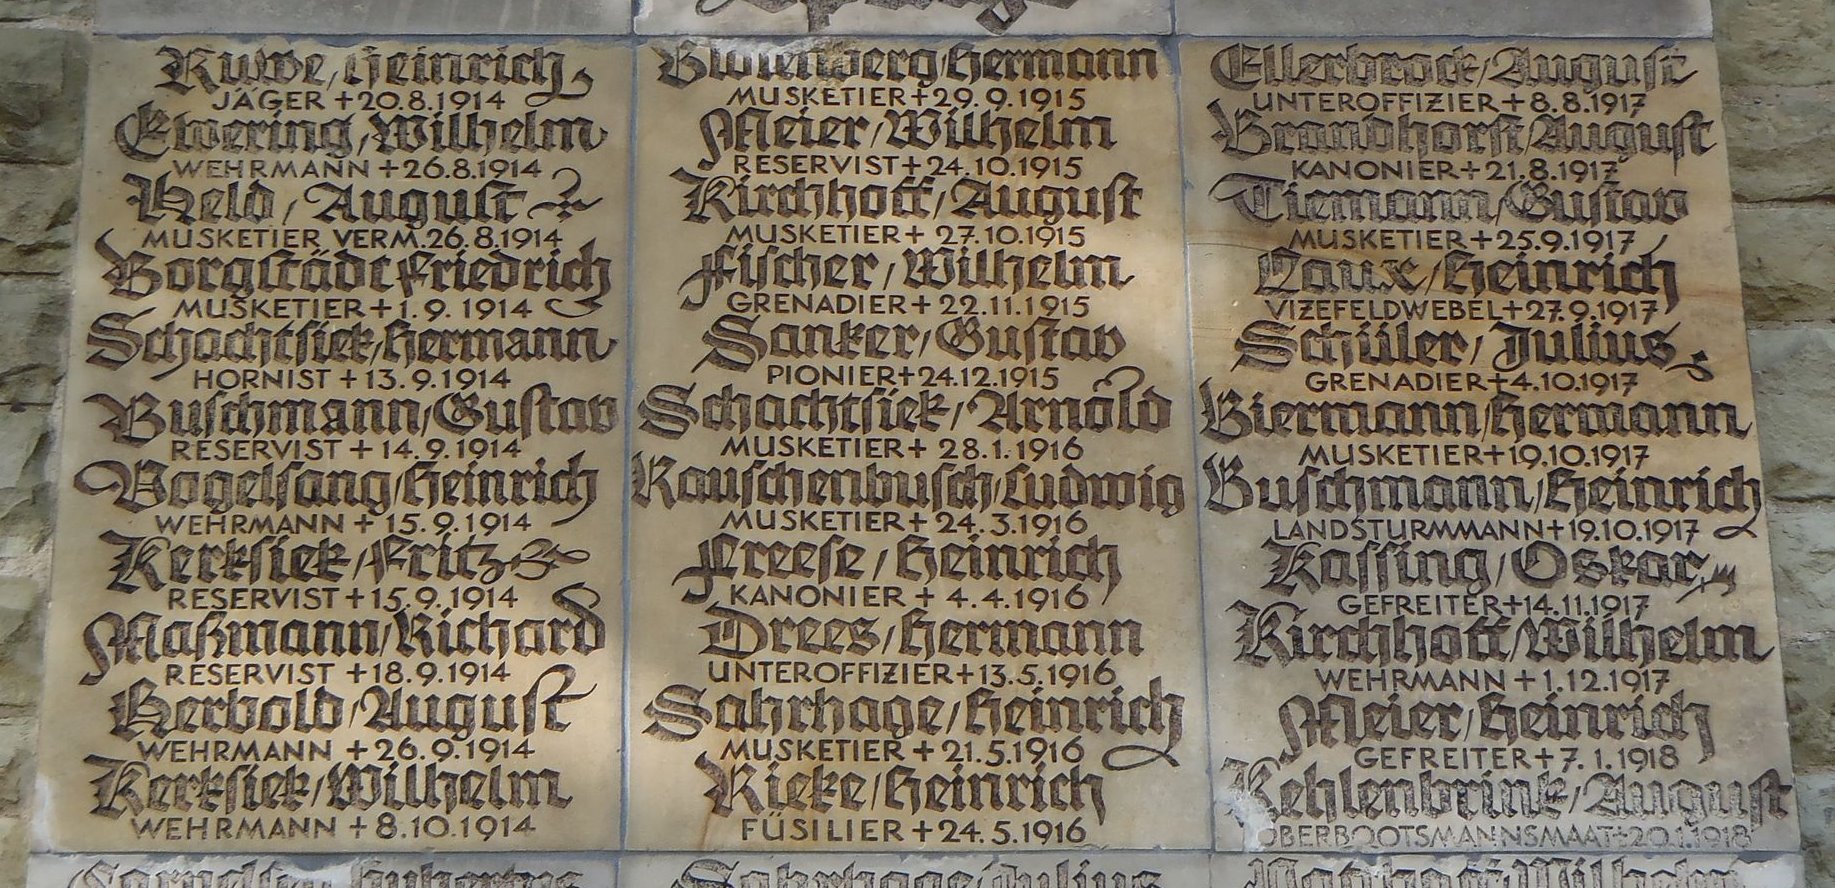 Ruwe, Heinrich
JÄGER + 20.8.1914
Ewering, Wilhelm
WEHRMANN + 26.8.1914
Held, August
MUSKETIER VERM. 26.8.1914
Borgstädt Friedrich
MUSKETIER + 1.9.1914
Schachtsiek, Hermann
HORNIST + 13.9.1914
Buschmann, Gustav
RESERVIST + 14.9.1914
Vogelsang, Heinrich
WEHRMANN + 15.9.1914
Kerksiek, Fritz
RESERVIST + 15.9.1914
Maßmann, Richard
RESERVIST + 18.9.1914
Herbold, August
WEHRMANN + 26.9.1914
Kerksiek, Wilhelm
WEHRMANN + 8.10.1914
Hermann
MUSKETIER + 29.9.1915
Meier, Wilhelm
RESERVIST + 24.10.1915
Kirchhoff, August
MUSKETIER + 27.10.1915
Fischer, Wilhelm
GRENADIER + 22.11.1915
Sanker, Gustav
PIONIER + 24.12.1915
Schachtsiek, Arnold
MUSKETIER + 28.1.1916
Rauschenbusch, Ludwig
MUSKETIER + 24.3.1916
Freese, Heinrich
KANONIER + 4.4.1916
Drees, Hermann
UNTEROFFIZIER + 13.5.1916
Sahrhage, Heinrich
MUSKETIER + 21.5.1916
Rieke, Heinrich
FÜSILIER + 24.5.1916
Sahrhage, Julius
Ellerbrock, August
UNTEROFFIZIER + 8.8.1917
Brandhorst, August
KANONIER + 21.8.1917
Tiemann, Gustav
MUSKETIER + 25.9.1917
Laux, Heinrich
VIZEFELDWEBEL + 27.9.1917
Schüler, Julius
GRENADIER + 4.10.1917
Biermann, Hermann
MUSKETIER + 19.10.1917
Buschmann, Heinrich
LANDSTURMMANN + 19.10.1917
Kassing, Oskar
GEFREITER + 14.11.1917
Kirchhoff, Wilhelm
WEHRMANN + 1.12.1917
Meier, Heinrich
GEFREITER + 7.1.1918
Kehlenbrink, August
OBERBOOTSMANNSMAAT + 20.1.1918
Wilhelm